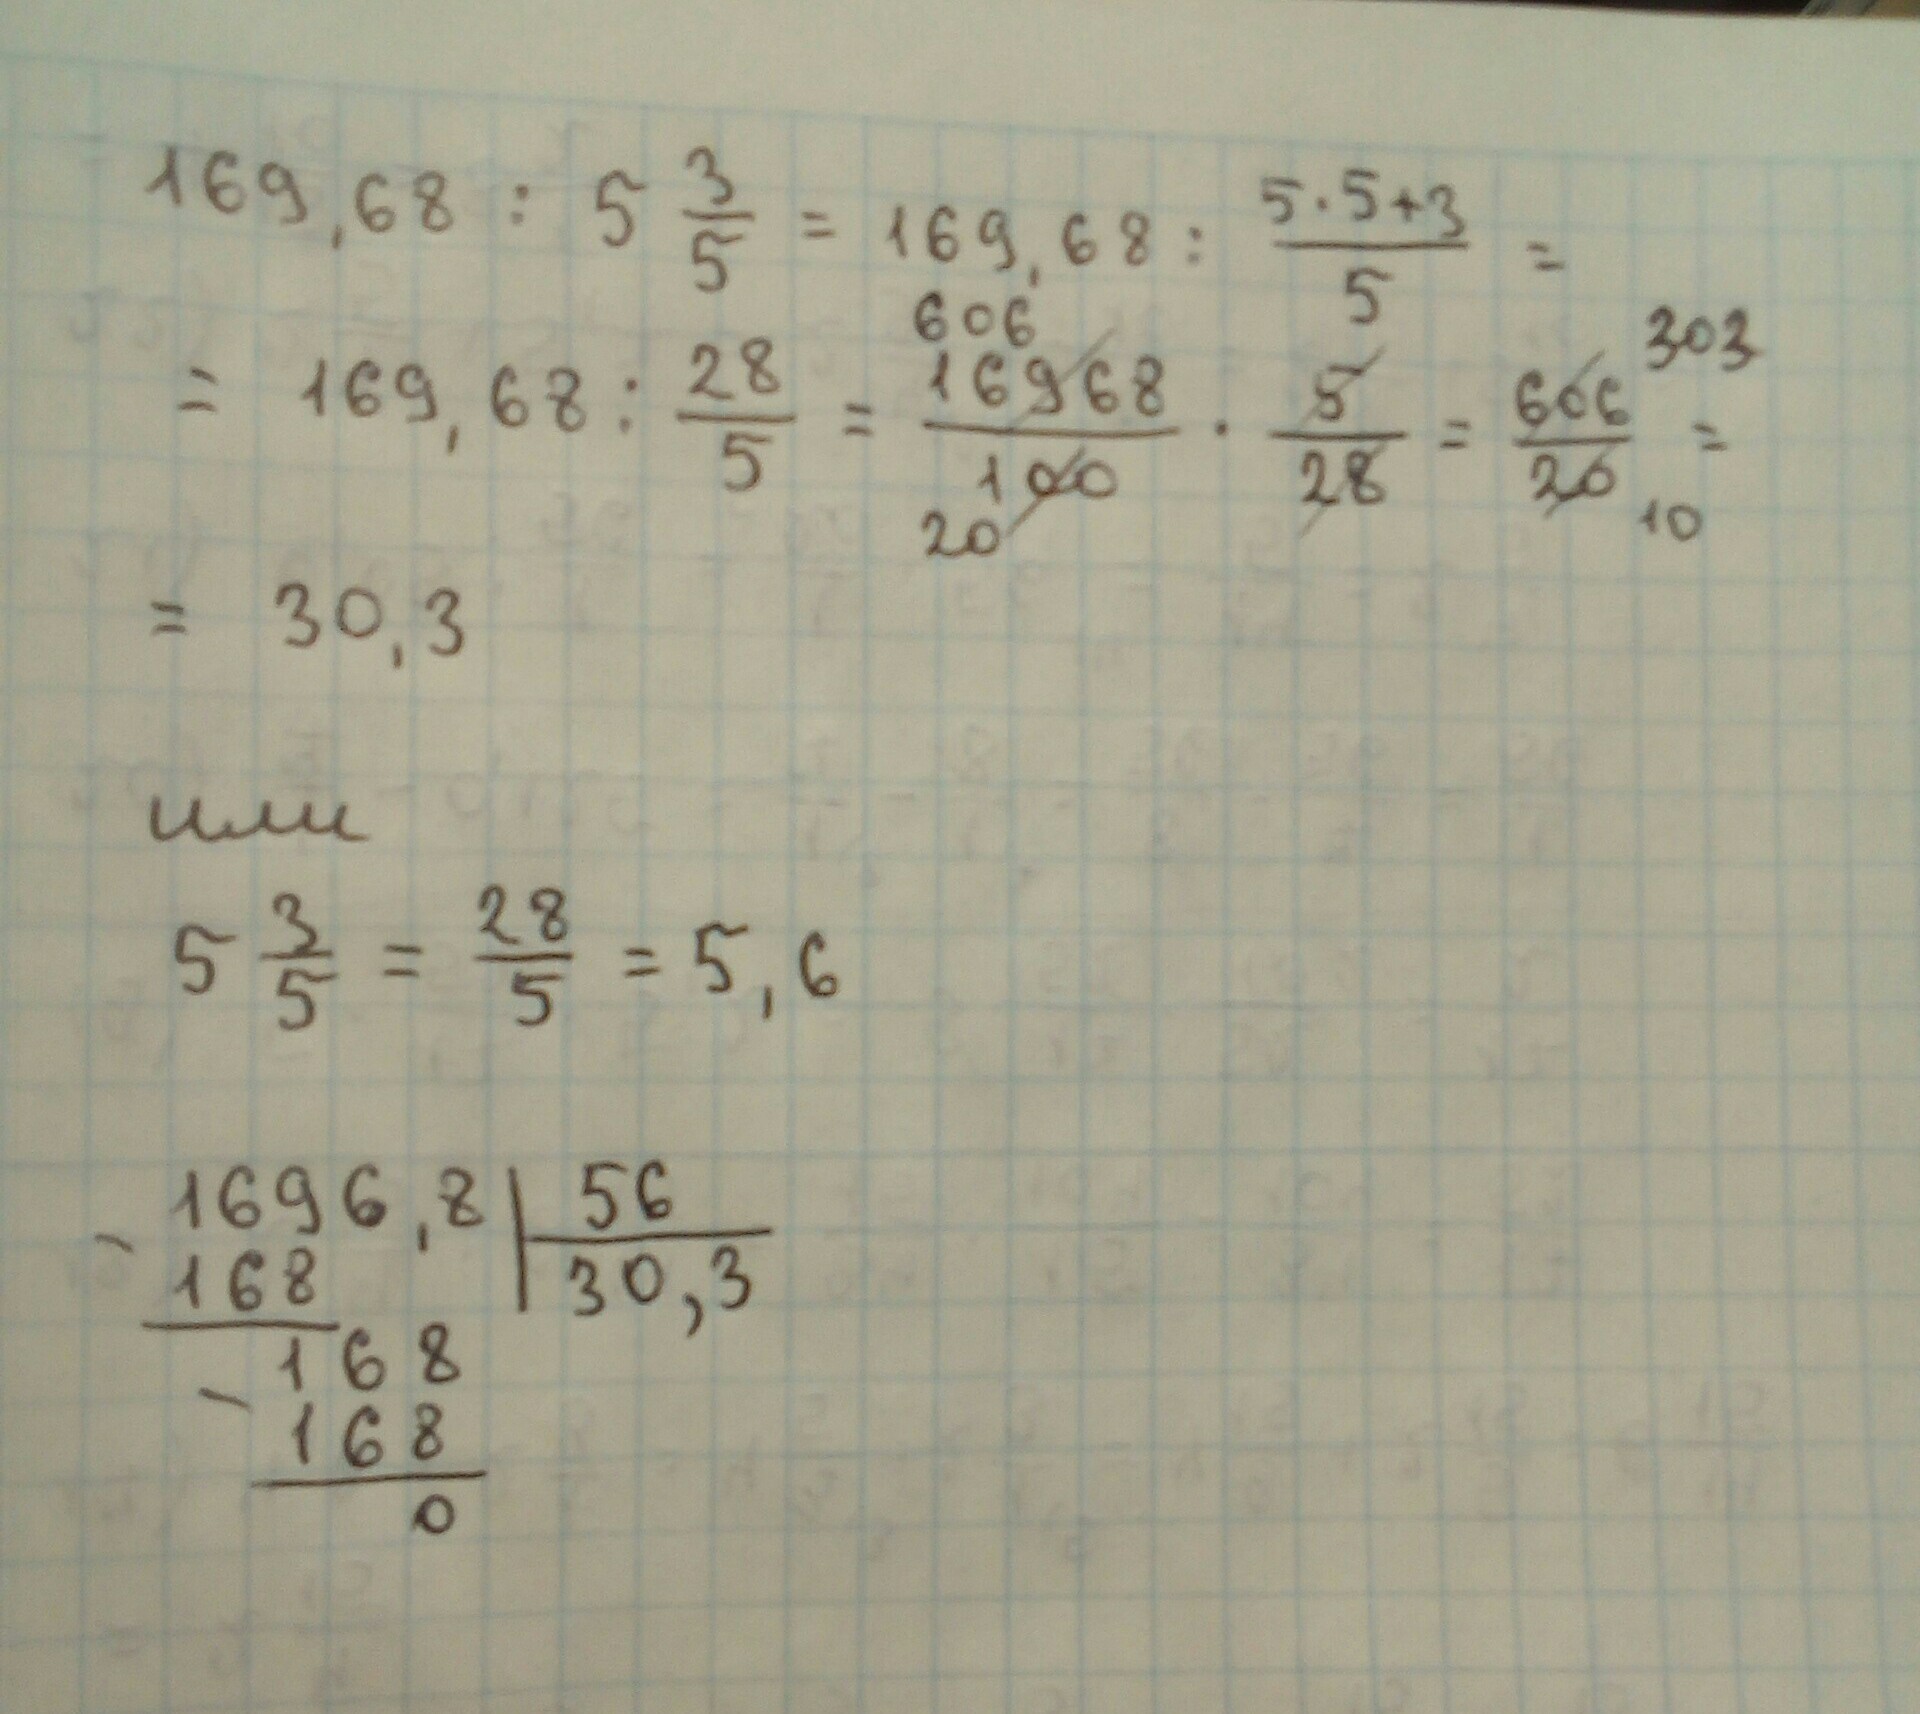 169,68 : 5 3/5 = 169,68 : (5·5+3)/5 =
606
= 169,68 : 28/5 = 16968/100 · 5/28 = 606/20 = 303
20 10
= 30,3
или
5 3/5 = 28/5 = 5,6
- 1696,8 | 56
168 | 30,3
- 168
168
0